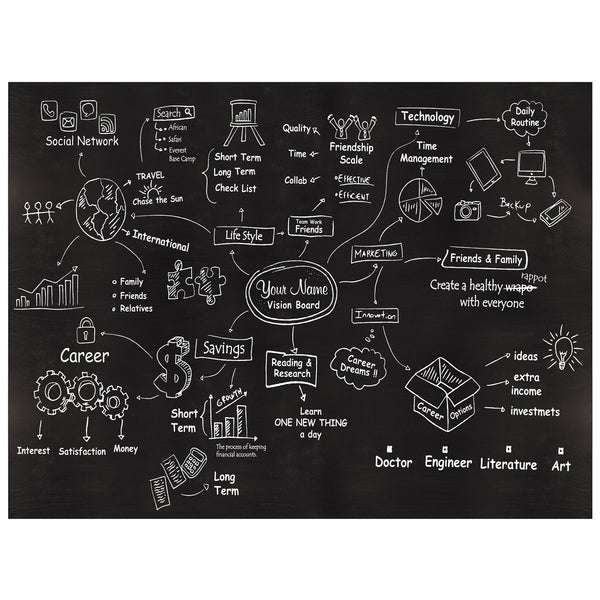 Social Network
Search
African
Safari
Everest
Base Camp
TRAVEL
Chase the Sun
International
Family
Friends
Relatives
Short Term
Long Term
Check List
Life Style
Quality
Time
Collab
Friendship
Scale
EFFECTIVE
EFFICENT
Team Work
Friends
Technology
Time
Management
Daily
Routine
BackUp
MARKETING
Friends & Family
Create a healthy wrapo rappot
with everyone
Your Name
Vision Board
Innovation
Career
Dreams !!
Reading &
Research
Learn
ONE NEW THING
a day
Savings
Short
Term
GROWTH
The process of keeping
financial accounts.
Long
Term
Career
Interest
Satisfaction
Money
Career
Options
ideas
extra
income
investmets
Doctor
Engineer
Literature
Art